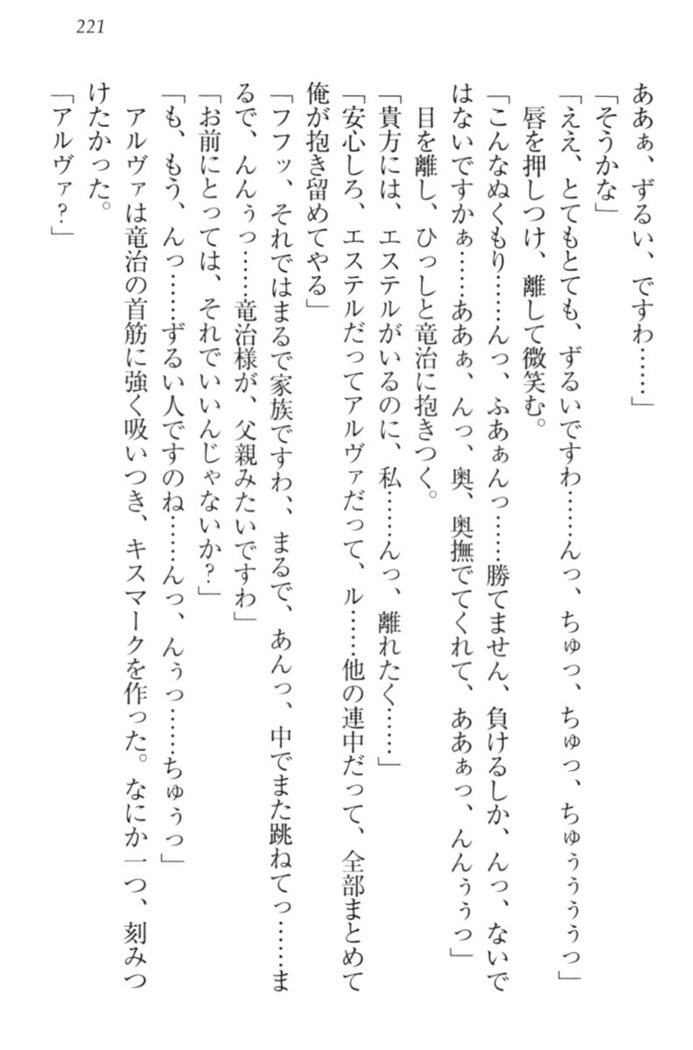 221
ああぁ、ずるい、ですわ……」
「そうかな」
「ええ、とてもとても、ずるいですわ……んっ、ちゅっ、ちゅっ、ちゅぅぅぅぅっ」
唇を押しつけ、離して微笑む。
「こんなぬくもり……んっ、ふあぁんっ……勝てません、負けるしか、んっ、ないで
はないですかぁ……ああぁ、んっ、奥、奥撫でてくれて、ああぁっ、んんぅぅっ」
目を離し、ひっしと竜治に抱きつく。
「貴方には、エステルがいるのに、私……んっ、離れたく……」
「安心しろ、エステルだってアルヴァだって、ル……他の連中だって、全部まとめて
俺が抱き留めてやる」
「フフッ、それではまるで家族ですわ、、まるで、あんっ、中でまた跳ねてっ……ま
るで、んんぅっ……竜治様が、父親みたいですわ」
「お前にとっては、それでいいんじゃないか?」
「も、もう、んっ……ずるい人ですのね……んっ、んぅっ……ちゅぅっ」
アルヴァは竜治の首筋に強く吸いつき、キスマークを作った。なにか一つ、刻みつ
けたかった。
「アルヴァ?」